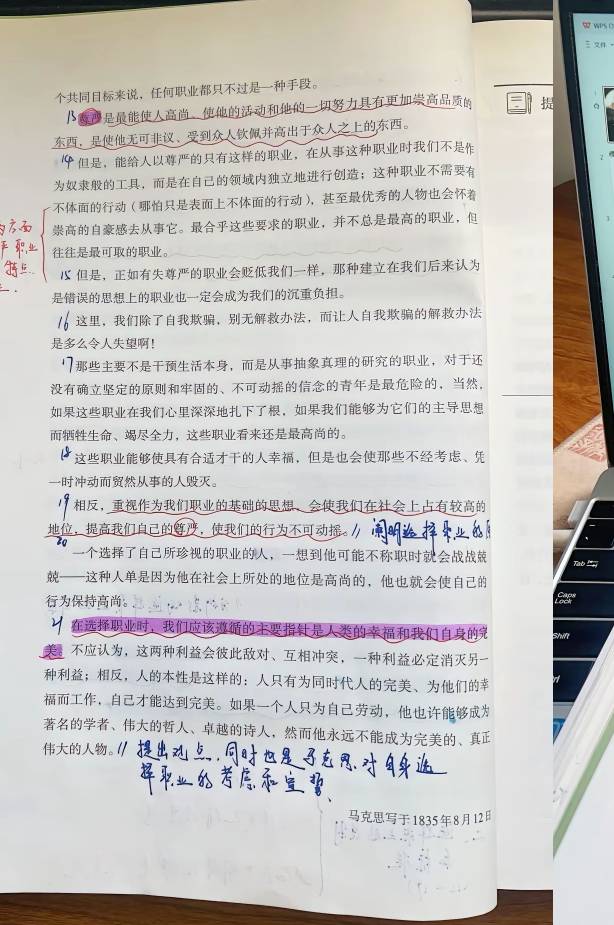 个共同目标来说，任何职业都只不过是一种手段。
13 尊严是最能使人高尚、使他的活动和他的一切努力具有更加崇高品质的
东西，是使他无可非议、受到众人钦佩并高出于众人之上的东西。
14 但是，能给人以尊严的只有这样的职业，在从事这种职业时我们不是作
为奴隶般的工具，而是在自己的领域内独立地进行创造；这种职业不需要有
不体面的行动（哪怕只是表面上不体面的行动），甚至最优秀的人物也会怀着
崇高的自豪感去从事它。最合乎这些要求的职业，并不总是最高的职业，但
往往是最可取的职业。
15 但是，正如有失尊严的职业会贬低我们一样，那种建立在我们后来认为
是错误的思想上的职业也一定会成为我们的沉重负担。
16 这里，我们除了自我欺骗，别无解救办法，而让人自我欺骗的解救办法
是多么令人失望啊！
17 那些主要不是干预生活本身，而是从事抽象真理的研究的职业，对于还
没有确立坚定的原则和牢固的、不可动摇的信念的青年是最危险的，当然，
如果这些职业在我们心里深深地扎下了根，如果我们能够为它们的主导思想
而牺牲生命、竭尽全力，这些职业看来还是最高尚的。
18 这些职业能够使具有合适才干的人幸福，但是也会使那些不经考虑、凭
一时冲动而贸然从事的人毁灭。
19 相反，重视作为我们职业的基础的思想，会使我们在社会上占有较高的
地位，提高我们自己的尊严，使我们的行为不可动摇。// 阐明选择职业的
20 一个选择了自己所珍视的职业的人，一想到他可能不称职时就会战战兢
兢——这种人单是因为他在社会上所处的地位是高尚的，他也就会使自己的
行为保持高尚。
21 在选择职业时，我们应该遵循的主要指针是人类的幸福和我们自身的完
美。不应认为，这两种利益会彼此敌对、互相冲突，一种利益必定消灭另一
种利益；相反，人的本性是这样的：人只有为同时代人的完美、为他们的幸
福而工作，自己才能达到完美。如果一个人只为自己劳动，他也许能够成为
著名的学者、伟大的哲人、卓越的诗人，然而他永远不能成为完美的、真正
伟大的人物。// 提出观点，同时也是马克思对自身选
择职业的考虑和宣誓、
马克思写于1835年8月12日
职业
特点
提
WPS
文件
Tab
Caps
Lock
Shift